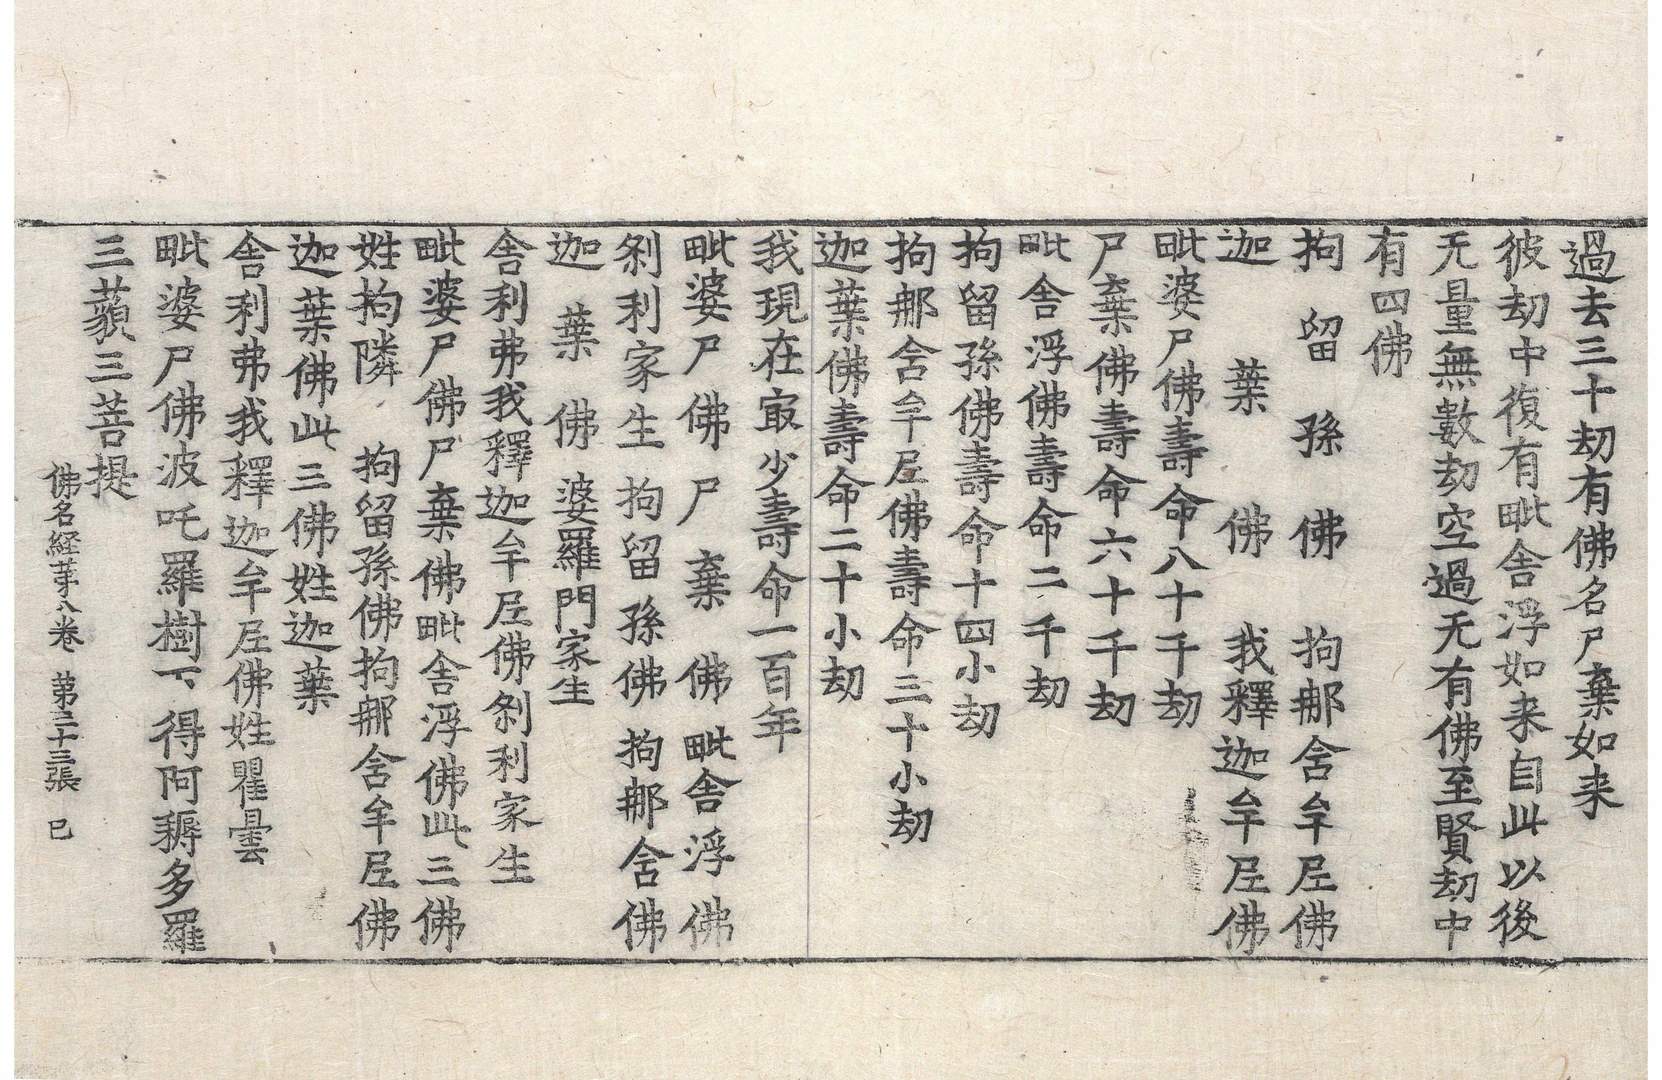 過去三十刧有佛名尸棄如来
彼刧中復有毗舍浮如来自此以後
无量無數刧空過无有佛至賢刧中
有四佛
拘留孫佛　拘那舍牟尼佛
迦葉佛　我釋迦牟尼佛
毗婆尸佛壽命八十千刧
尸棄佛壽命六十千刧
毗舍浮佛壽命二千刧
拘留孫佛壽命十四小刧
拘那舍牟尼佛壽命三十小刧
迦葉佛壽命二十小刧
我現在㝡少壽命一百年
毗婆尸佛尸棄佛毗舍浮佛
刹利家生拘留孫佛拘那舍佛
迦葉佛婆羅門家生
舍利弗我釋迦牟尼佛刹利家生
毗婆尸佛尸棄佛毗舍浮佛此三佛
姓拘隣　拘留孫佛拘那舍牟尼佛
迦葉佛此三佛姓迦葉
舍利弗我釋迦牟尼佛姓瞿曇
毗婆尸佛波吒羅樹下得阿耨多羅
三藐三菩提
佛名経苐八卷　第三十三張　巳